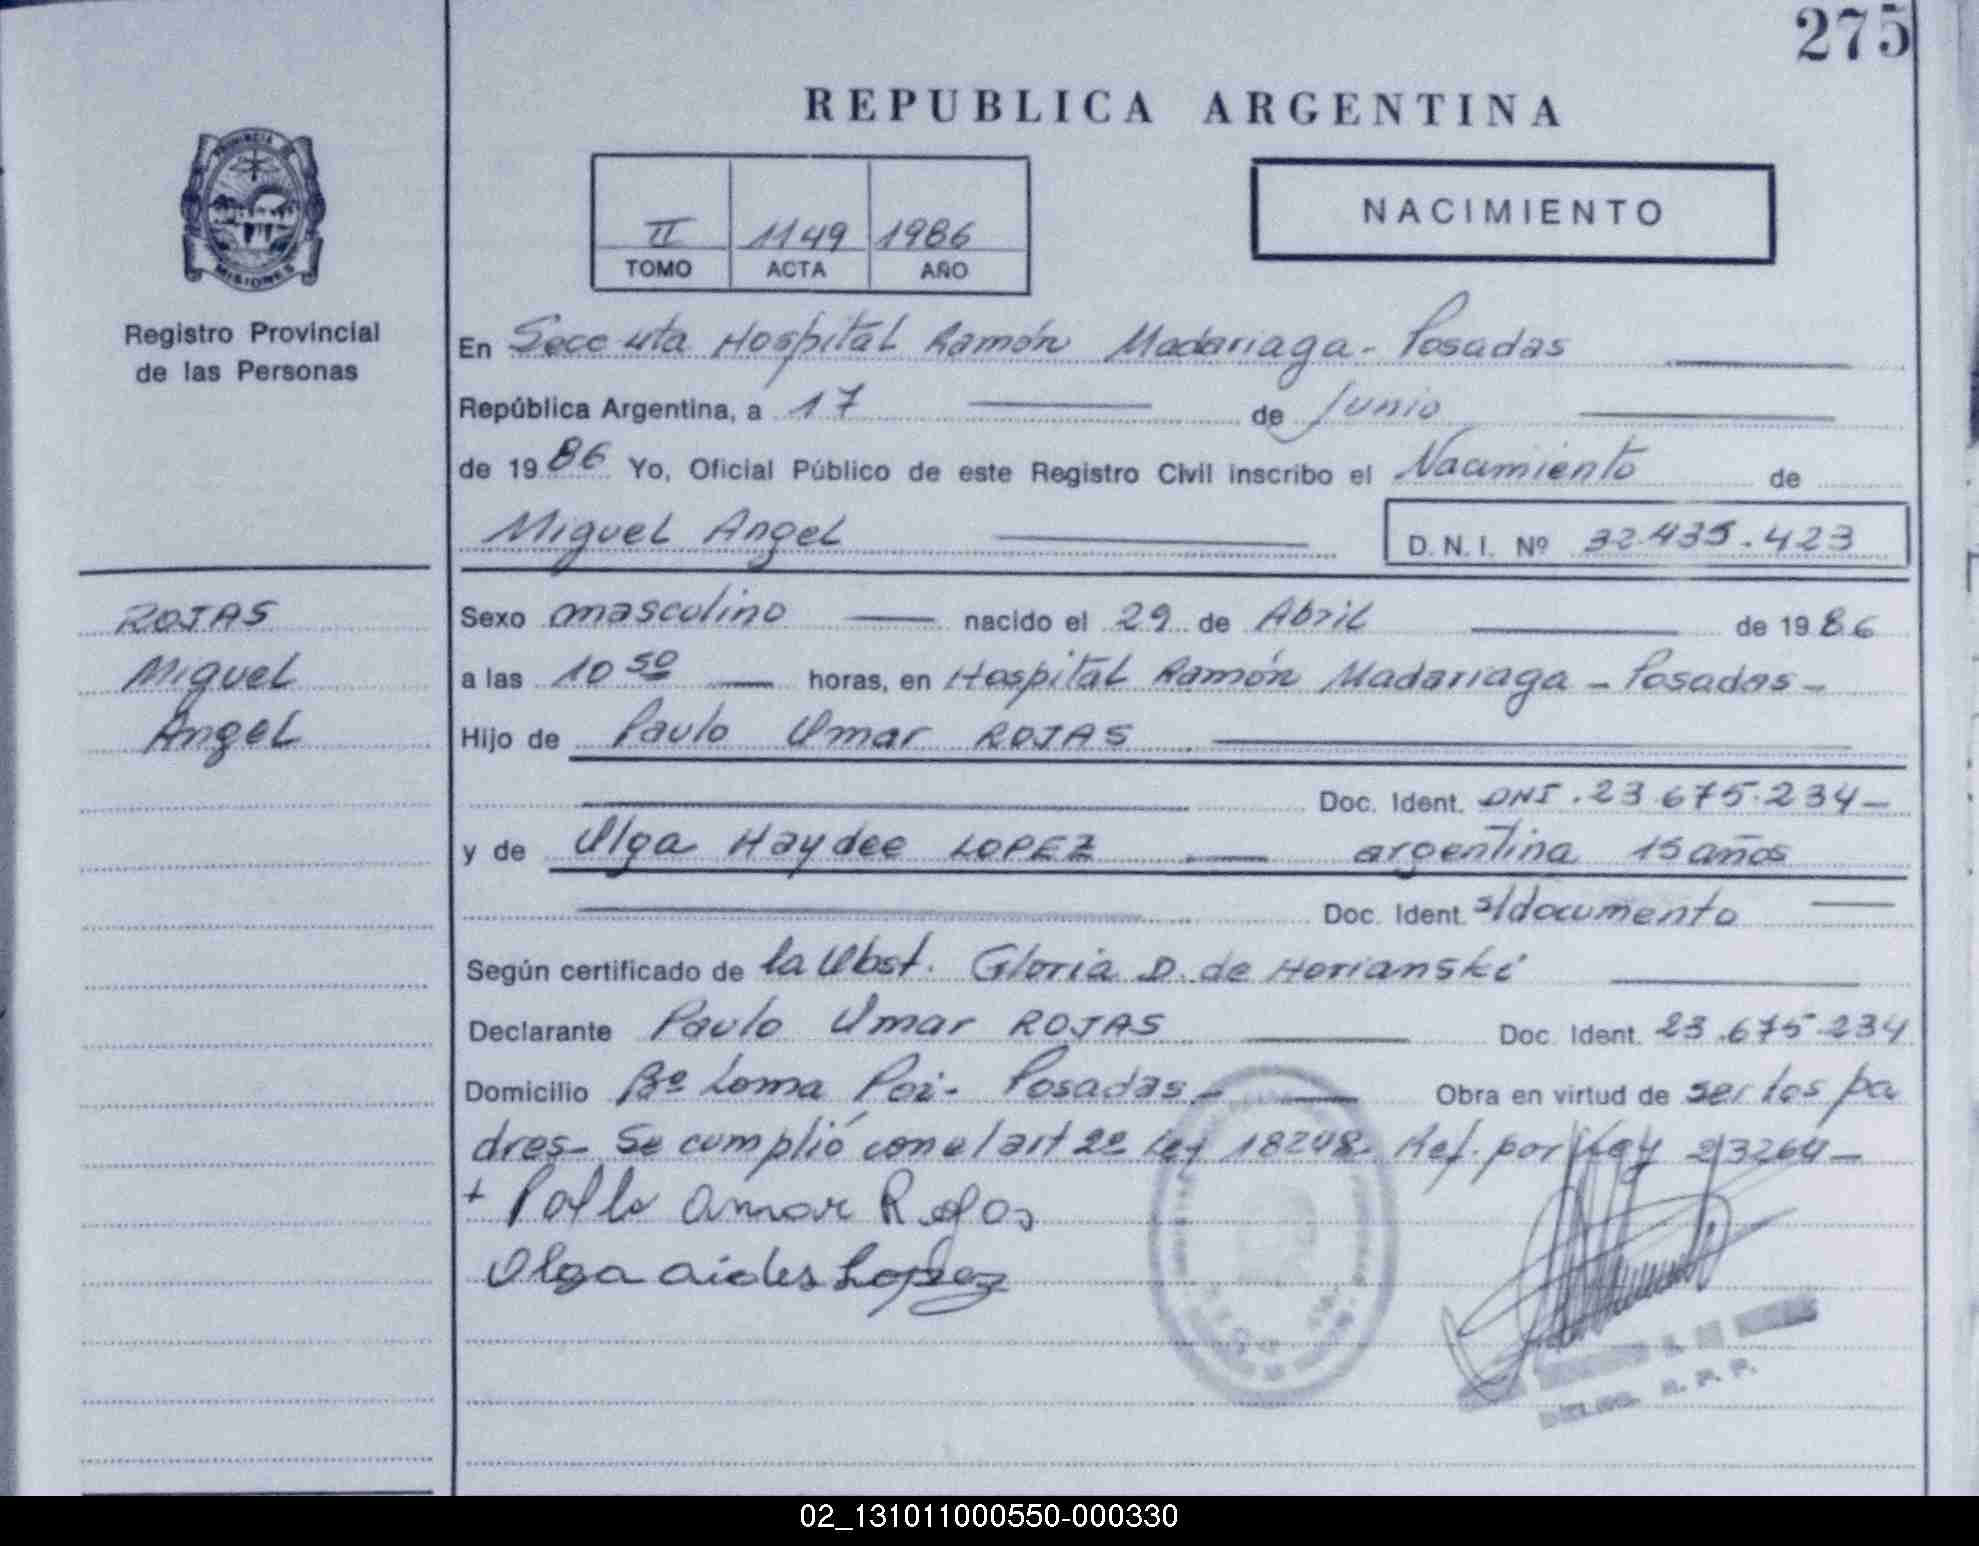 275
REPUBLICA ARGENTINA
PROVINCIA DE
MISIONES
II 1149 1986
TOMO ACTA AÑO
NACIMIENTO
Registro Provincial
de las Personas
En Hospital Ramón Madariaga - Posadas
República Argentina, a 17 de Junio
de 1986 Yo, Oficial Público de este Registro Civil inscribo el Nacimiento de
Miguel Angel D. N. I. Nº 32.435.423
ROJAS
Miguel
Angel
Sexo masculino nacido el 29 de Abril de 1986
a las 10 50 horas, en Hospital Ramón Madariaga - Posadas -
Hijo de Paulo Omar ROJAS
Doc. Ident. DNI. 23.675.234-
y de Olga Haydee LOPEZ argentina 15 años
Doc. Ident. s/documento
Según certificado de la Obst. Gloria D. de Horianski
Declarante Paulo Omar ROJAS Doc. Ident. 23.675.234
Domicilio Bº Loma Poi - Posadas - Obra en virtud de ser los pa
dres - Se cumplió con el art 2º Ley 18248 - Ref. por Ley 23264 -
+ Pollo Omar Rojas
Olga aides Lopez
R. P. P.
02_131011000550-000330